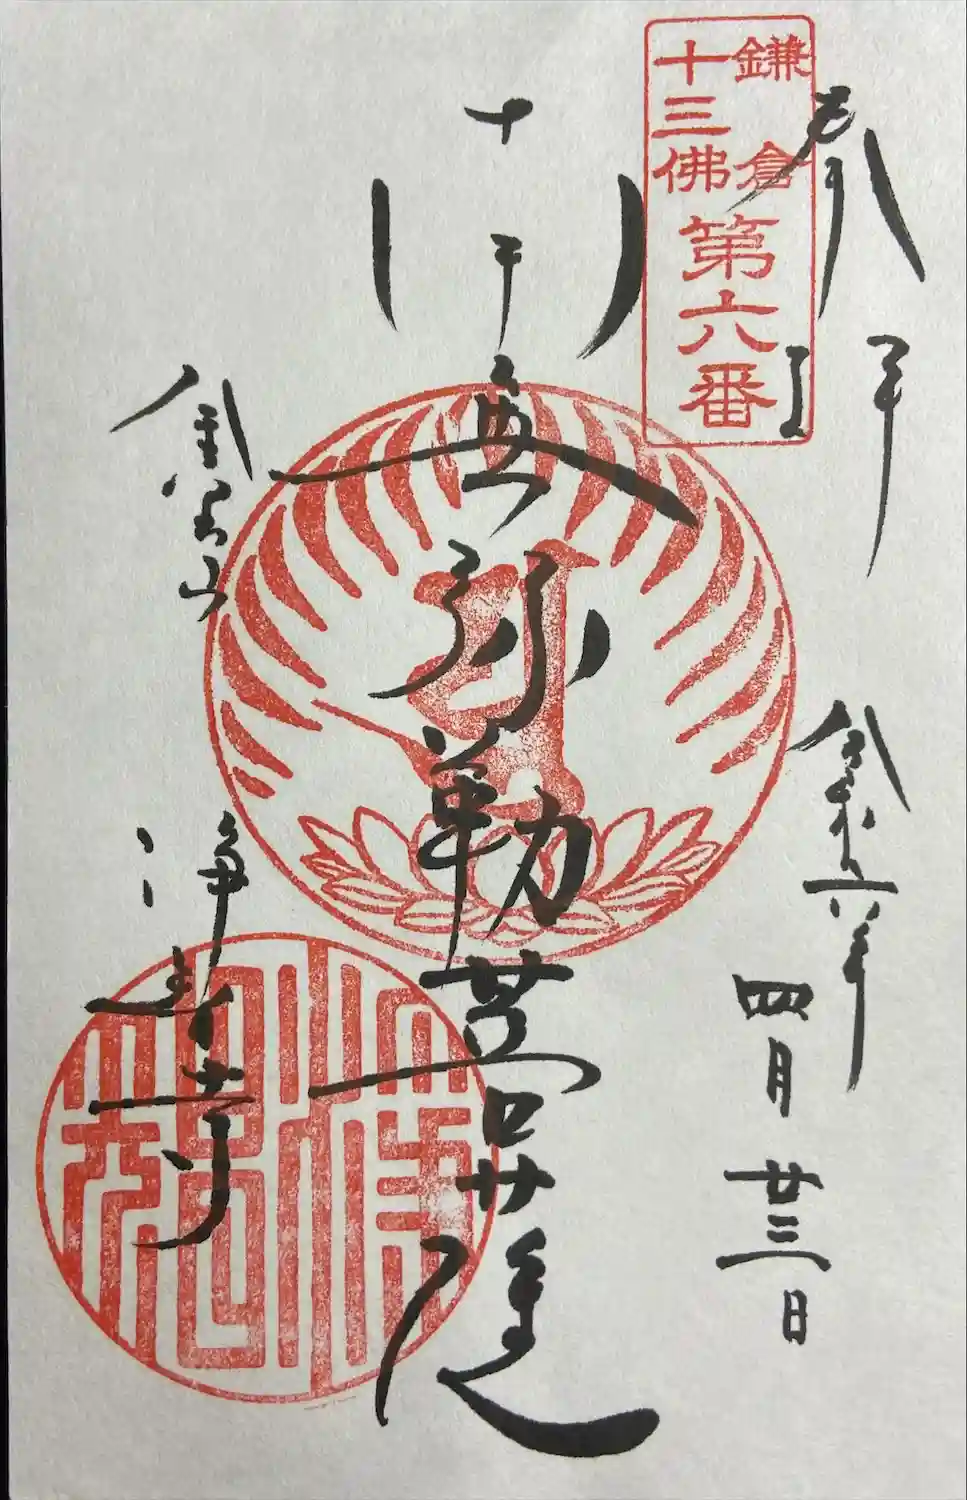 鎌倉
十三佛
第六番
奉拝
令和六年
四月廿三日
弥勒菩薩
金宝山
浄智寺